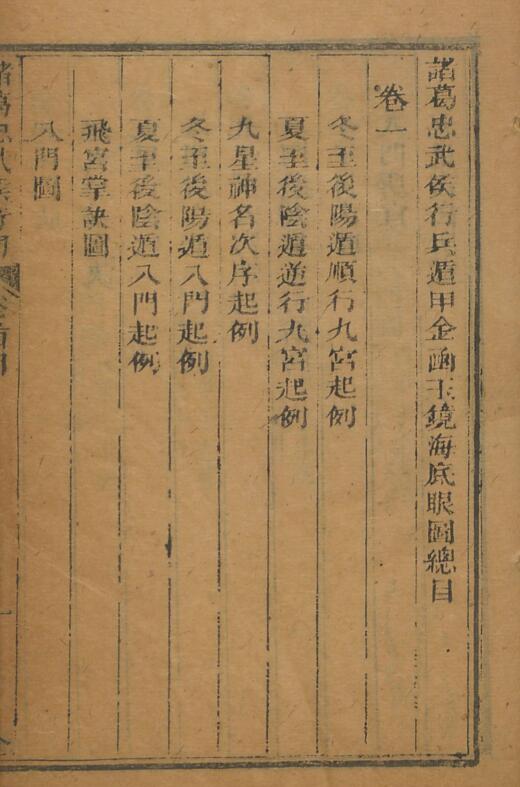 諸葛忠武侯行兵遁甲金函玉鏡海底眼圖總目
卷一
冬至後陽遁順行九宮起例
夏至後陰遁逆行九宮起例
九星神名次序起例
冬至後陽遁八門起例
夏至後陰遁八門起例
飛宮掌訣圖
八門圖
諸葛忠武侯行